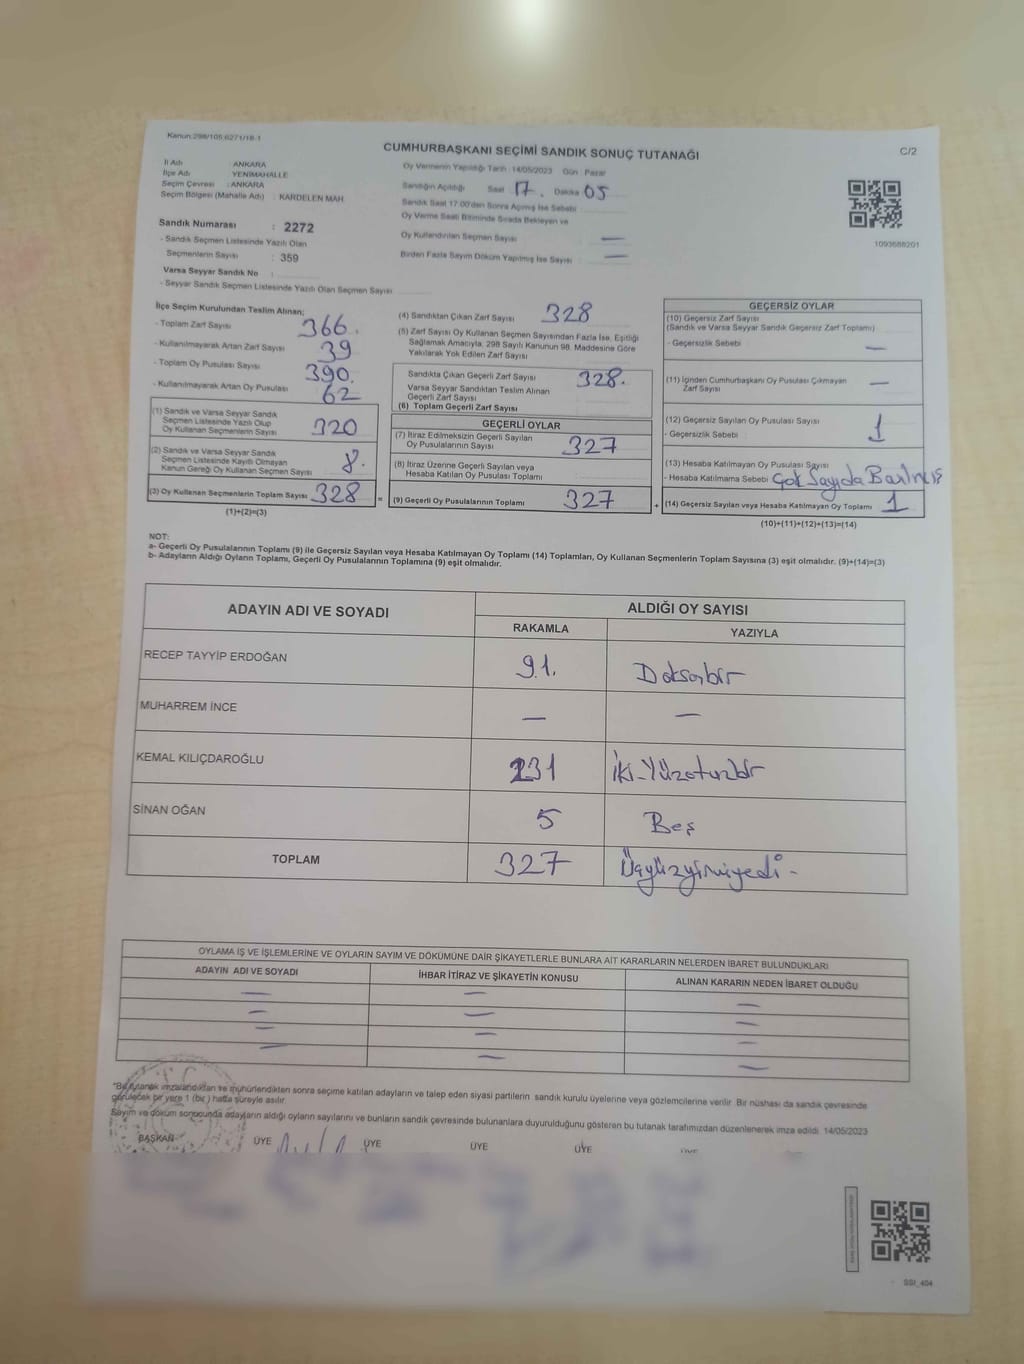 Kanun:298/105.6271/18-1
CUMHURBAŞKANI SEÇİMİ SANDIK SONUÇ TUTANAĞI
C/2
İl Adı : ANKARA
İlçe Adı : YENİMAHALLE
Seçim Çevresi : ANKARA
Seçim Bölgesi (Mahalle Adı) : KARDELEN MAH.
Oy Vermenin Yapıldığı Tarih :14/05/2023 Gün : Pazar
Sandığın Açıldığı Saat 17. Dakika 05
Sandık Saat 17:00'den Sonra Açılmış İse Sebebi
Oy Verme Saati Bitiminde Sırada Bekleyen ve
Oy Kullandırılan Seçmen Sayısı —
Birden Fazla Sayım Döküm Yapılmış İse Sayısı —
1093688201
Sandık Numarası : 2272
- Sandık Seçmen Listesinde Yazılı Olan
Seçmenlerin Sayısı : 359
Varsa Seyyar Sandık No :
- Seyyar Sandık Seçmen Listesinde Yazılı Olan Seçmen Sayısı
İlçe Seçim Kurulundan Teslim Alınan;
- Toplam Zarf Sayısı 366.
- Kullanılmayarak Artan Zarf Sayısı 39
- Toplam Oy Pusulası Sayısı 390.
- Kullanılmayarak Artan Oy Pusulası 62
(1) Sandık ve Varsa Seyyar Sandık
Seçmen Listesinde Yazılı Olup
Oy Kullanan Seçmenlerin Sayısı 320
(2) Sandık ve Varsa Seyyar Sandık
Seçmen Listesinde Kayıtlı Olmayan
Kanun Gereği Oy Kullanan Seçmen Sayısı 8.
(3) Oy Kullanan Seçmenlerin Toplam Sayısı 328 =
(1)+(2)=(3)
(4) Sandıktan Çıkan Zarf Sayısı 328
(5) Zarf Sayısı Oy Kullanan Seçmen Sayısından Fazla İse, Eşitliği
Sağlamak Amacıyla, 298 Sayılı Kanunun 98. Maddesine Göre
Yakılarak Yok Edilen Zarf Sayısı
Sandıkta Çıkan Geçerli Zarf Sayısı 328.
Varsa Seyyar Sandıktan Teslim Alınan
Geçerli Zarf Sayısı
(6) Toplam Geçerli Zarf Sayısı
GEÇERLİ OYLAR
(7) İtiraz Edilmeksizin Geçerli Sayılan
Oy Pusulalarının Sayısı 327
(8) İtiraz Üzerine Geçerli Sayılan veya
Hesaba Katılan Oy Pusulası Toplamı
(9) Geçerli Oy Pusulalarının Toplamı 327 +
GEÇERSİZ OYLAR
(10) Geçersiz Zarf Sayısı
(Sandık ve Varsa Seyyar Sandık Geçersiz Zarf Toplamı)
- Geçersizlik Sebebi —
(11) İçinden Cumhurbaşkanı Oy Pusulası Çıkmayan
Zarf Sayısı —
(12) Geçersiz Sayılan Oy Pusulası Sayısı 1
- Geçersizlik Sebebi
(13) Hesaba Katılmayan Oy Pusulası Sayısı
- Hesaba Katılmama Sebebi Çok Sayıda Basılmış
(14) Geçersiz Sayılan veya Hesaba Katılmayan Oy Toplamı 1
(10)+(11)+(12)+(13)=(14)
NOT:
a- Geçerli Oy Pusulalarının Toplamı (9) ile Geçersiz Sayılan veya Hesaba Katılmayan Oy Toplamı (14) Toplamları, Oy Kullanan Seçmenlerin Toplam Sayısına (3) eşit olmalıdır. (9)+(14)=(3)
b- Adayların Aldığı Oyların Toplamı, Geçerli Oy Pusulalarının Toplamına (9) eşit olmalıdır.
ADAYIN ADI VE SOYADI ALDIĞI OY SAYISI
RAKAMLA YAZIYLA
RECEP TAYYİP ERDOĞAN 91. Doksanbir
MUHARREM İNCE — —
KEMAL KILIÇDAROĞLU 231 İki-Yüzotuzbir
SİNAN OĞAN 5 Beş
TOPLAM 327 Üçyüzyirmiyedi -
OYLAMA İŞ VE İŞLEMLERİNE VE OYLARIN SAYIM VE DÖKÜMÜNE DAİR ŞİKAYETLERLE BUNLARA AİT KARARLARIN NELERDEN İBARET BULUNDUKLARI
ADAYIN ADI VE SOYADI İHBAR İTİRAZ VE ŞİKAYETİN KONUSU ALINAN KARARIN NEDEN İBARET OLDUĞU
— — —
— — —
— — —
— — —
*Bu tutanak imzalandıktan ve mühürlendikten sonra seçime katılan adayların ve talep eden siyasi partilerin sandık kurulu üyelerine veya gözlemcilerine verilir. Bir nüshası da sandık çevresinde
görülecek bir yere 1 (bir) hafta süreyle asılır.
Sayım ve döküm sonucunda adayların aldığı oyların sayılarını ve bunların sandık çevresinde bulunanlara duyurulduğunu gösteren bu tutanak tarafımızdan düzenlenerek imza edildi. 14/05/2023
BAŞKAN ÜYE ÜYE ÜYE ÜYE ÜYE
SSI_404